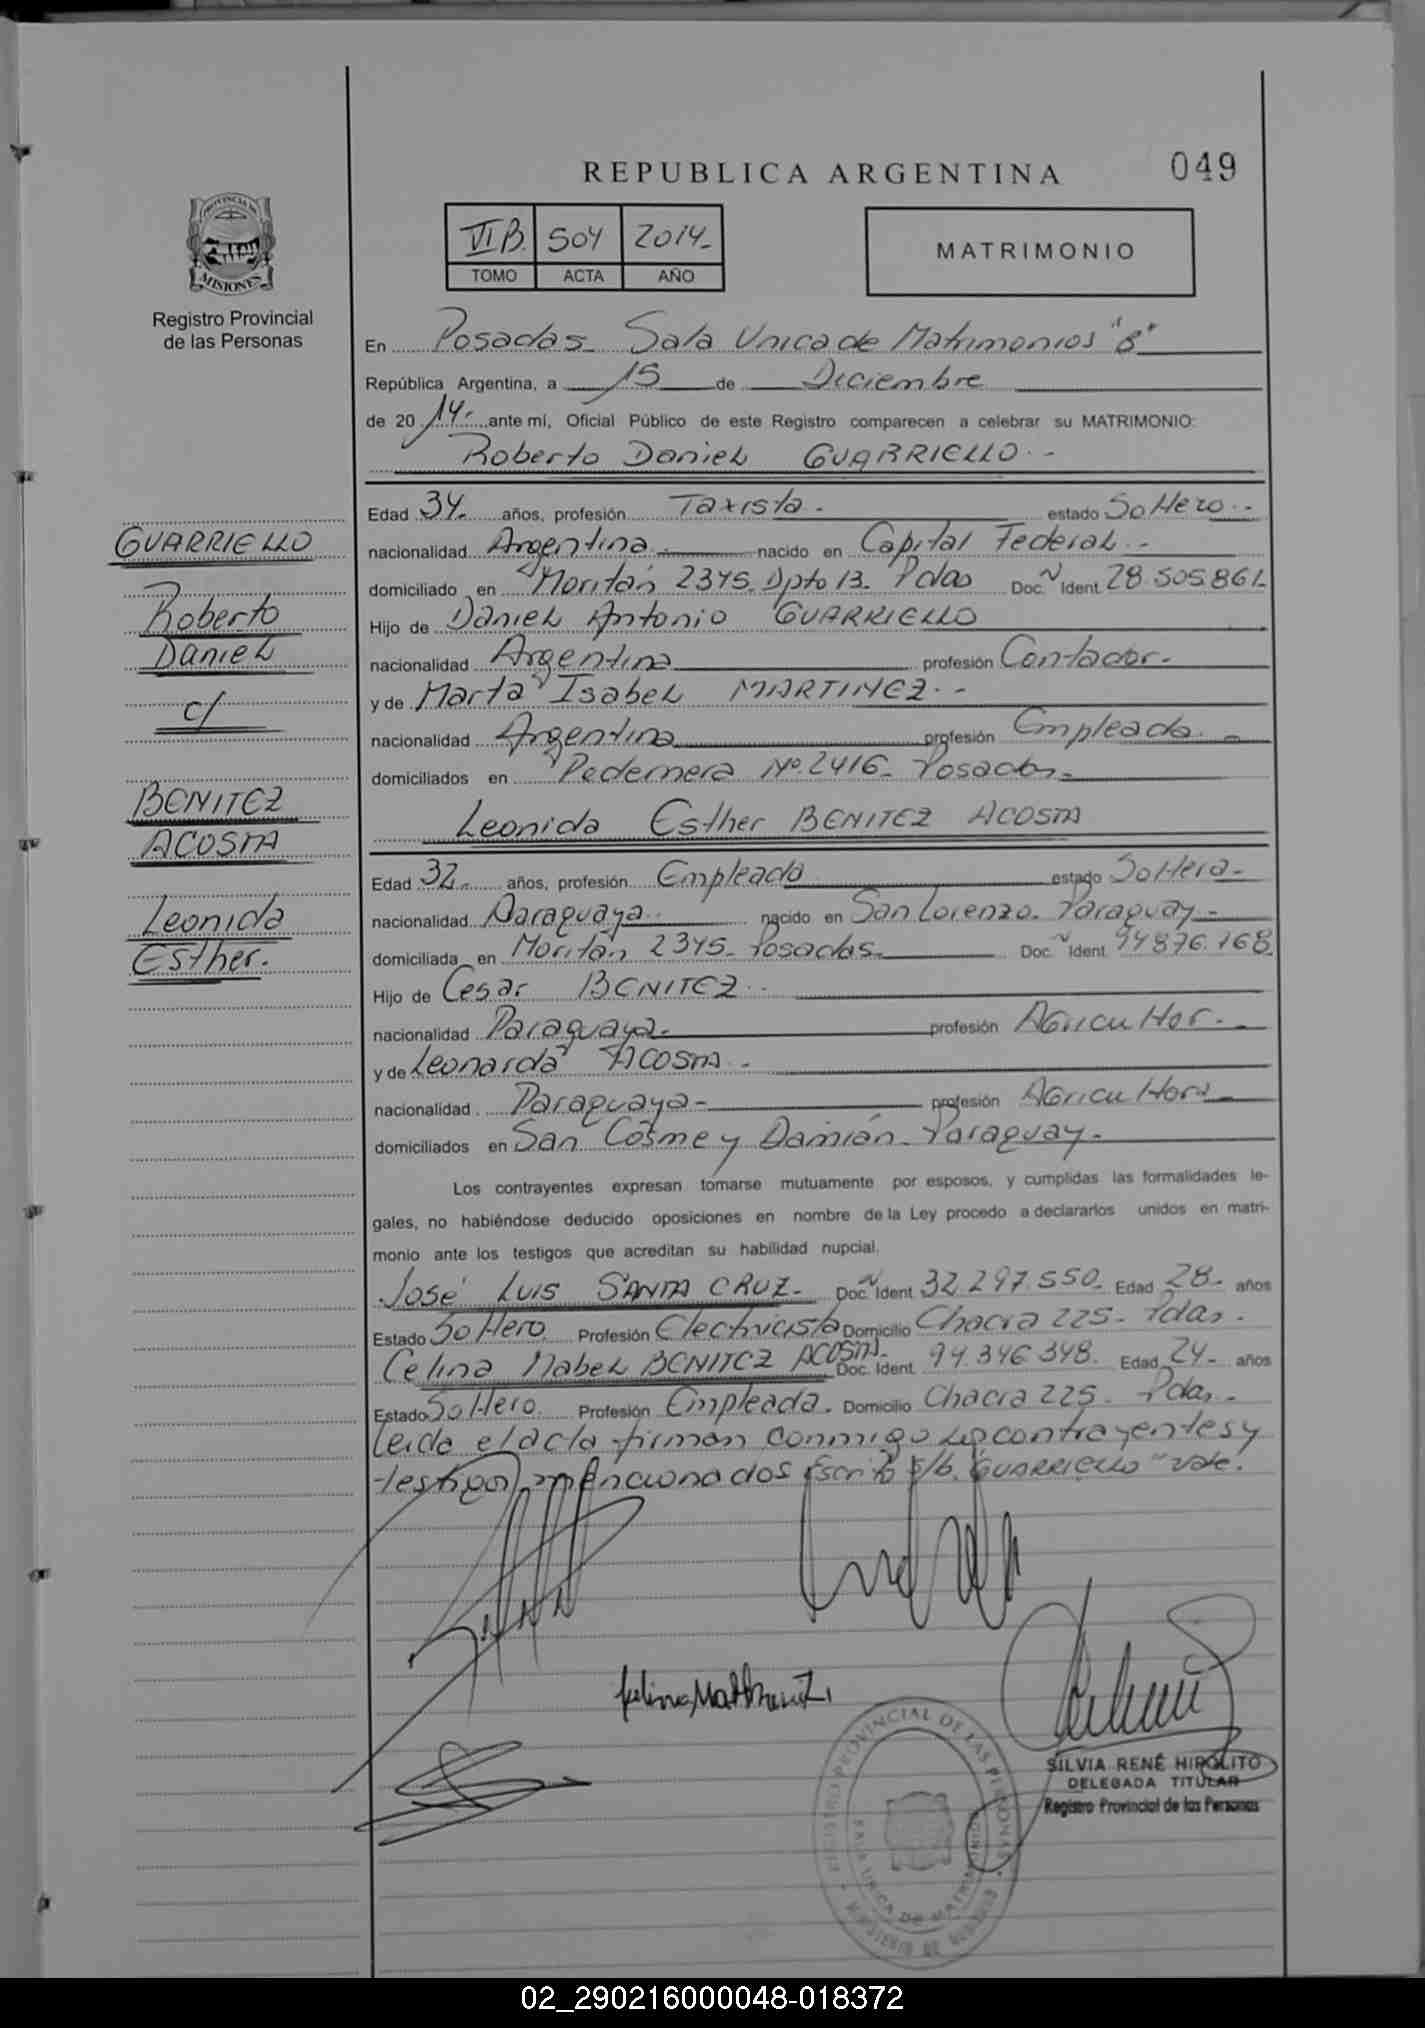 REPUBLICA ARGENTINA
049
VI B. 504 2014-
TOMO ACTA AÑO
MATRIMONIO
PROVINCIA DE
MISIONES
Registro Provincial
de las Personas
En Posadas- Sala Unica de Matrimonios "B"
República Argentina, a 15 de Diciembre
de 20 14.- ante mí, Oficial Público de este Registro comparecen a celebrar su MATRIMONIO:
Roberto Daniel GUARRIELLO.-
Edad 34.- años, profesión Taxista.- estado Soltero.-
nacionalidad Argentina.- nacido en Capital Federal.-
domiciliado en Moritán 2345. Dpto 13. Pdas Doc. N Ident. 28.505.861-
Hijo de Daniel Antonio GUARRIELLO
nacionalidad Argentina profesión Contador.-
y de Marta Isabel MARTINEZ.-
nacionalidad Argentina profesión Empleada.-
domiciliados en Pedernera Nº 2416- Posadas.-
Leonida Esther BENITEZ ACOSTA
Edad 32.- años, profesión Empleada estado Soltera.-
nacionalidad Paraguaya.- nacido en San Lorenzo. Paraguay.-
domiciliada en Moritán 2345- Posadas.- Doc. N Ident. 94876.768
Hijo de Cesar BENITEZ.-
nacionalidad Paraguaya.- profesión Agricultor.-
y de Leonarda ACOSTA.-
nacionalidad Paraguaya- profesión Agricultora
domiciliados en San Cosme y Damián- Paraguay.-
Los contrayentes expresan tomarse mutuamente por esposos, y cumplidas las formalidades le-
gales, no habiéndose deducido oposiciones en nombre de la Ley procedo a declararlos unidos en matri-
monio ante los testigos que acreditan su habilidad nupcial.
José Luis SANTA CRUZ- Doc. N Ident. 32.297.550- Edad 28- años
Estado Soltero. Profesión Electricista Domicilio Chacra 225- Pdas.-
Celina Mabel BENITEZ ACOSTA.- Doc. Ident. 94.346.348. Edad 24- años
Estado Soltero. Profesión Empleada. Domicilio Chacra 225. Pdas.-
Leida el acta firman conmigo los contrayentes y
testigos mencionados Escrito s/b. "GUARRIELLO" Vale.
GUARRIELLO
Roberto
Daniel
c/
BENITEZ
ACOSTA
Leonida
Esther.
SILVIA RENÉ HIPOLITO
DELEGADA TITULAR
Registro Provincial de las Personas
REGISTRO PROVINCIAL DE LAS PERSONAS
SALA UNICA DE MATRIMONIO
02_290216000048-018372